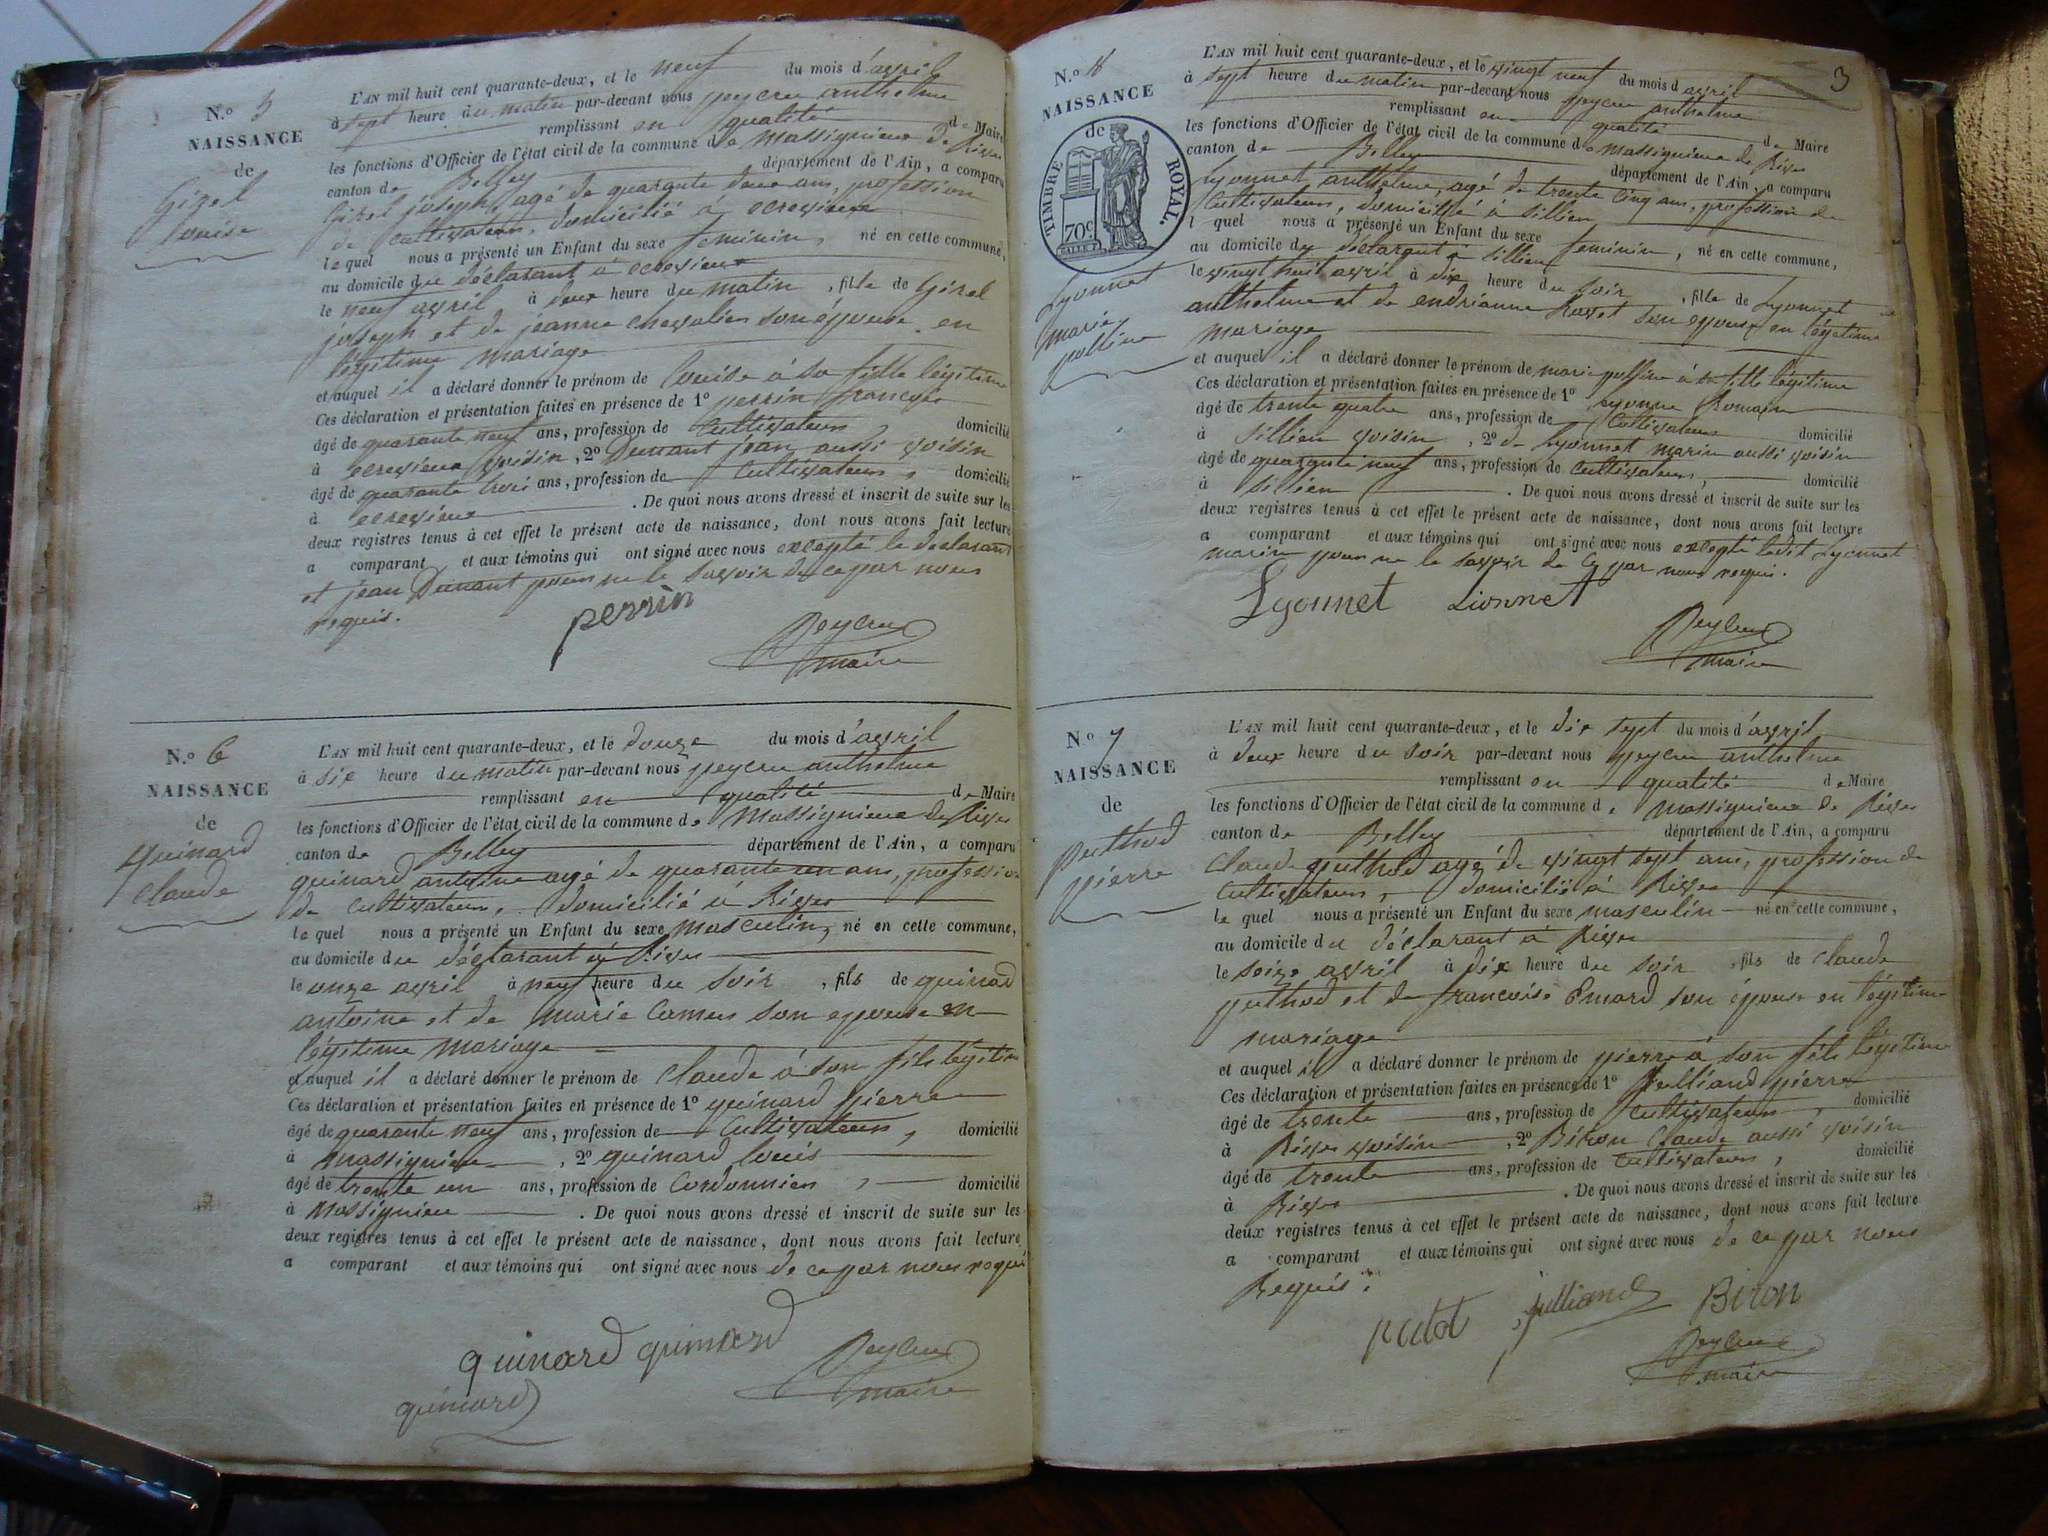 N.o 5
NAISSANCE
de
Gizel
louise
L'AN mil huit cent quarante-deux, et le neuf du mois d'avril
à sept heure du matin par-devant nous peycru anthelme
remplissant en qualité de Maire
les fonctions d'Officier de l'état civil de la commune de Massignieu de Rives
canton de Belley département de l'Ain, a comparu
Gizel joseph, agé de quarante deux ans, profession
de cultivateur, domicilié à ecrevieux
le quel nous a présenté un Enfant du sexe feminin, né en cette commune,
au domicile du déclarant à ecrevieux
le neuf avril à deux heure du matin, fille de Gizel
joseph et de jeanne chevalier son épouse en
légitime mariage
et auquel il a déclaré donner le prénom de louise à sa fille légitime
Ces déclaration et présentation faites en présence de 1o perrin françois
âgé de quarante neuf ans, profession de Cultivateur, domicilié
à ecrevieux voisin, 2o Dunant jean aussi voisin
âgé de quarante trois ans, profession de Cultivateur, domicilié
à ecrevieux . De quoi nous avons dressé et inscrit de suite sur les
deux registres tenus à cet effet le présent acte de naissance, dont nous avons fait lecture
a comparant et aux témoins qui ont signé avec nous excepté le declarant
et jean Dunant pour ne le savoir de ce par nous
requis.
perrin
Peycru
maire
N.o 6
NAISSANCE
de
quinard
claude
L'AN mil huit cent quarante-deux, et le douze du mois d'avril
à six heure du matin par-devant nous peycru anthelme
remplissant en qualité de Maire
les fonctions d'Officier de l'état civil de la commune de Massignieu de Rives
canton de Belley département de l'Ain, a comparu
quinard antoine agé de quarante un ans, profession
de cultivateur, domicilié à Rives
le quel nous a présenté un Enfant du sexe masculin, né en cette commune,
au domicile du déclarant à Rives
le onze avril à neuf heure du soir, fils de quinard
antoine et de marie Camus son epouse en
légitime mariage
et auquel il a déclaré donner le prénom de claude à son fils légitime
Ces déclaration et présentation faites en présence de 1o quinard pierre
âgé de quarante neuf ans, profession de Cultivateur, domicilié
à massignieu, 2o quinard louis
âgé de trente un ans, profession de Cordonnier, domicilié
à Massignieu . De quoi nous avons dressé et inscrit de suite sur les
deux registres tenus à cet effet le présent acte de naissance, dont nous avons fait lecture
a comparant et aux témoins qui ont signé avec nous de ce par nous requis
quinard quinard
quinard
Peycru
maire
3
N.o 8
NAISSANCE
de
TIMBRE ROYAL.
70c
Lyonnet
marie
polline
L'AN mil huit cent quarante-deux, et le vingt neuf du mois d'avril
à sept heure du matin par-devant nous peycru anthelme
remplissant en qualité de Maire
les fonctions d'Officier de l'état civil de la commune de massignieu de Rives
canton de Belley département de l'Ain, a comparu
Lyonnet anthelme, agé de trente cinq ans, profession de
Cultivateur, domicilié à sillien
l quel nous a présenté un Enfant du sexe feminin, né en cette commune,
au domicile du déclarant à sillien
le vingt huit avril à dix heure du soir, fille de Lyonnet
anthelme et de endrianne Ravet son epouse en légitime
mariage
et auquel il a déclaré donner le prénom de marie polline à sa fille légitime
Ces déclaration et présentation faites en présence de 1o Lyonne Romain
âgé de trente quatre ans, profession de Cultivateur domicilié
à sillien voisin, 2o de Lyonnet marin aussi voisin
âgé de quarante neuf ans, profession de Cultivateur, domicilié
à silien . De quoi nous avons dressé et inscrit de suite sur les
deux registres tenus à cet effet le présent acte de naissance, dont nous avons fait lecture
a comparant et aux témoins qui ont signé avec nous excepté ledit Lyonnet
marin pour ne le savoir de ce par nous requis.
Lyonnet Lionnet
Peycru
maire
N.o 7
NAISSANCE
de
puthod
pierre
L'AN mil huit cent quarante-deux, et le dix sept du mois d'avril
à deux heure du soir par-devant nous peycru anthelme
remplissant en qualité de Maire
les fonctions d'Officier de l'état civil de la commune de massignieu de Rives
canton de Belley département de l'Ain, a comparu
Claude puthod agé de vingt sept ans, profession de
Cultivateur, domicilié à Rives
le quel nous a présenté un Enfant du sexe masculin né en cette commune,
au domicile du déclarant à Rives
le seize avril à dix heure du soir, fils de claude
puthod et de francoise Emard son épouse en légitime
mariage
et auquel il a déclaré donner le prénom de pierre à son fils légitime
Ces déclaration et présentation faites en présence de 1o julliand pierre
âgé de trente ans, profession de cultivateur, domicilié
à Rives voisin, 2o Biron Claude aussi voisin
âgé de trente ans, profession de Cultivateur, domicilié
à Rives . De quoi nous avons dressé et inscrit de suite sur les
deux registres tenus à cet effet le présent acte de naissance, dont nous avons fait lecture
a comparant et aux témoins qui ont signé avec nous de ce par nous
Requis.
julliand Biron
Peycru
maire